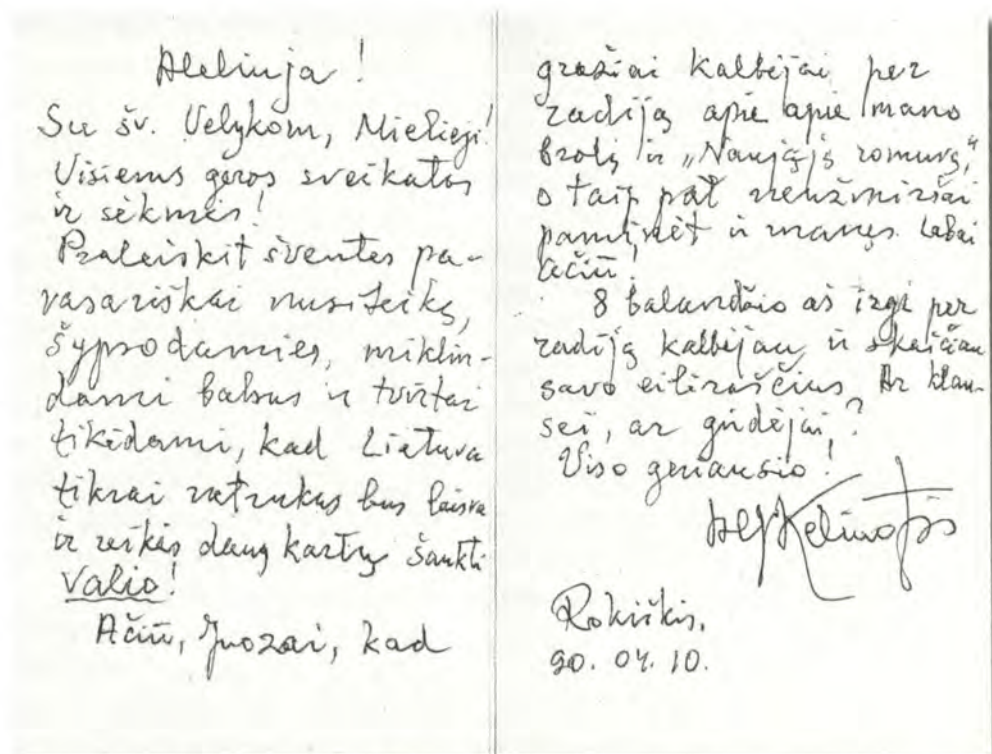 Aleliuja!
Su šv. Velykom, Mielieji!
Visiems geros sveikatos
ir sėkmės!
Praleiskit šventes pa-
vasariškai nusiteikę,
šypsodamies, miklin-
dami balsus ir tvirtai
tikėdami, kad Lietuva
tikrai netrukus bus laisva
ir reikės daug kartų šaukti
Valio!
Ačiū, Juozai, kad
gražiai kalbėjai per
radiją apie apie mano
brolį ir „Naująją romuvą,"
o taip pat neužmiršai
paminėt ir manęs. Labai
ačiū!
8 balandžio aš irgi per
radiją kalbėjau ir skaičiau
savo eilėraščius. Ar klau-
sei, ar girdėjai?
Viso geriausio!
Rokiškis,
90. 04. 10.